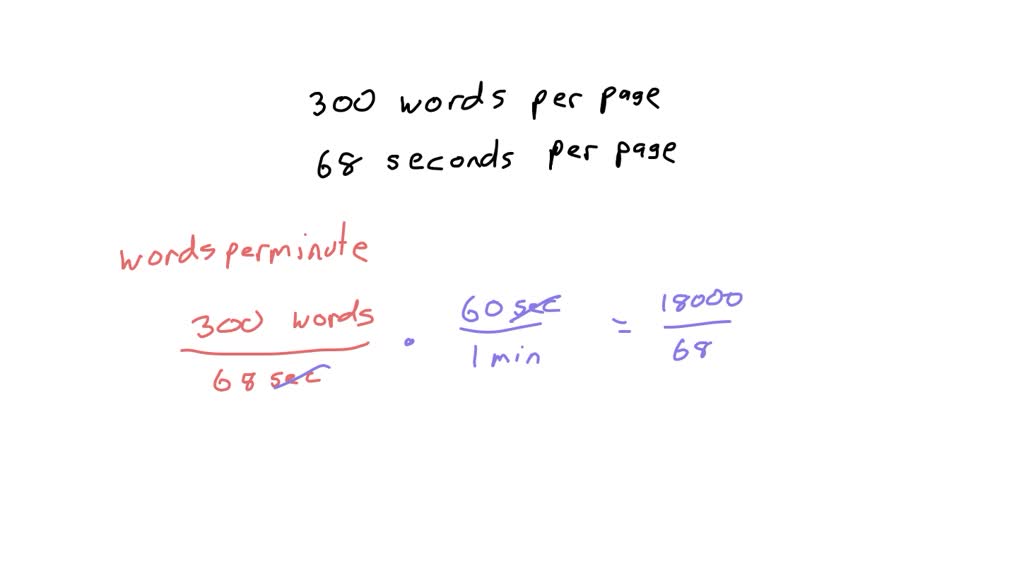 300 words per page
68 seconds per page
words perminute
300 words / 68 sec · 60 sec / 1 min = 18000 / 68